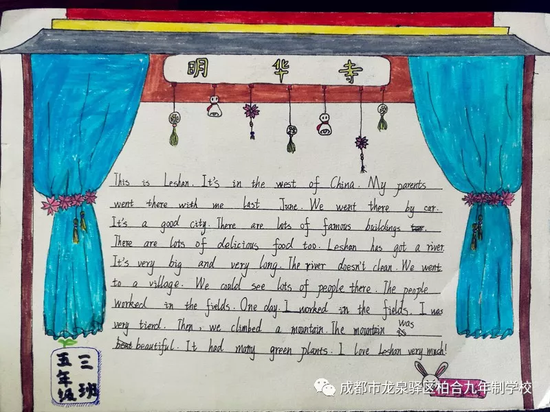 明华寺
This is Leshan. It's in the west of China. My parents
went there with me last June. We went there by car.
It's a good city. There are lots of famous buildings
There are lots of delicious food too. Leshan has got a river.
It's very big and very long. The river doesn't clean. We went
to a village. We could see lots of people there. The people
worked in the fields. One day. I worked in the fields. I was
very tierd. Then, we climbed a mountain. The mountain was
beautiful. It had many green plants. I love Leshan very much!
五年级
三班
成都市龙泉驿区柏合九年制学校